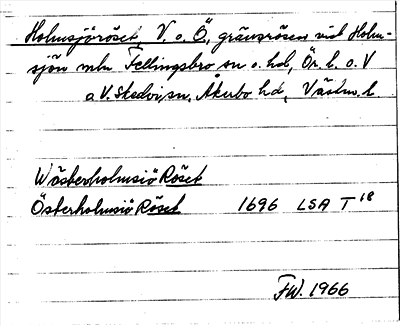 Holmsjöröset, V. o. Ö, gränsrösen vid Holm-
sjön mln Fellingsbro sn o. hd, Ör. l. o. V
a V. Skedvi sn, Åkerbo hd, Västm. l.
Wästerholmsiö Röset
Österholmsiö Röset 1696 LSA T 18
FW. 1966